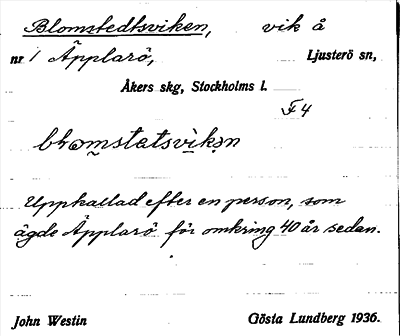 Blomstedtsviken, vik å
nr 1 Äpplarö, Ljusterö sn,
Åkers skg, Stockholms l.
F4
blωmstatsvikən
Uppkallad efter en person, som
ägde Äpplarö för omkring 40 år sedan.
John Westin Gösta Lundberg 1936.